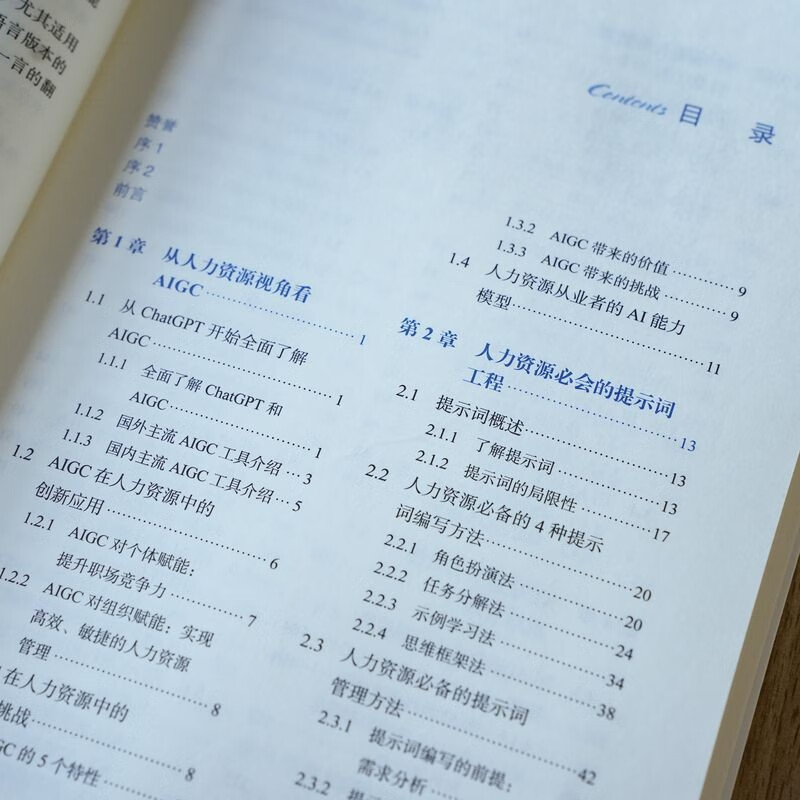 尤其适用
语言版本的
一言的翻
Contents 目 录
赞誉
序 1
序 2
前言
第 1 章 从人力资源视角看
AIGC 1
1.1 从 ChatGPT 开始全面了解
AIGC 1
1.1.1 全面了解 ChatGPT 和
AIGC 1
1.1.2 国外主流 AIGC 工具介绍 3
1.1.3 国内主流 AIGC 工具介绍 5
1.2 AIGC 在人力资源中的
创新应用 6
1.2.1 AIGC 对个体赋能：
提升职场竞争力 7
1.2.2 AIGC 对组织赋能：实现
高效、敏捷的人力资源
管理 8
在人力资源中的
挑战 8
GC 的 5 个特性
1.3.2 AIGC 带来的价值 9
1.3.3 AIGC 带来的挑战 9
1.4 人力资源从业者的 AI 能力
模型 11
第 2 章 人力资源必会的提示词
工程 13
2.1 提示词概述 13
2.1.1 了解提示词 13
2.1.2 提示词的局限性 17
2.2 人力资源必备的 4 种提示
词编写方法 20
2.2.1 角色扮演法 20
2.2.2 任务分解法 24
2.2.3 示例学习法 34
2.2.4 思维框架法 38
2.3 人力资源必备的提示词
管理方法 42
2.3.1 提示词编写的前提：
需求分析
2.3.2